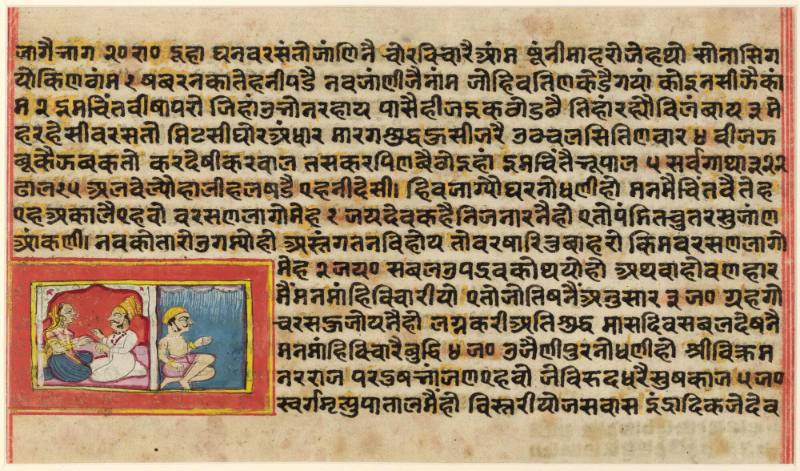 जागैनाग २० रा० दूहा घनवरसंतोजांणिनै चोरविचारैआंम षुंनीमाहरोजेहथो सोनासिग
योकिणगंम १ षबरनकातेहनीपडै नवजांणीजैनांम जोहिवतिणकेडैगयां कोइनसीजैकां
म २ इमचिंतवीषापरो जिहांतुनोनरहाय पासैहीजइकवोडबै तिहांरह्यौविलंबाय ३ मे
हरहेसीवरसतो मिटसीघोरअंधार मारगशुद्धऊसीजरै उठचलसितिणवार ४ वीजऊ
बूकैऊबकतो करदेषीकरवाल तसकरपिणबैवोइहां इमचिंतैनूपाल ५ सर्वगाथा३२२
ढाल१५ अलबेल्यौहालीहलषडै एहनीदेसी। हिवजाग्यौघरनोधणीहो मनमैचिंतवैतेह
एहअकालैएहवो वरसणलागोमेह १ जयदेवकहैनिजनारनैहो एतोपंमितचुतरसुजांण
आंकणी। नवकोतारोउगम्योहो अस्तंगतनविहोय तोवरषारितुबाहरो किमवरसणलागो
मेह २ जय० सबलउपद्रवकोथयोहो अथवाहोवणहार
मैंमनमांहिविचारीयो एतोजोतिषनैंअनुसार ३ ज० ग्रहगो
चरसऊजोयनैहो लग्नकरीअतिशुद्ध मासदिवसबलदेषनै
मनमांहिविचारैबुद्धि ४ ज० उजेणीपुरनोधणीहो श्रीविक्रम
नरराज परदुषनांजणएहवो जेविरूदधरैसुषकाज ५ ज०
स्वर्गमृत्युपातालमैहो विस्तरीयोजसवास इंद्रादिकजेदेव